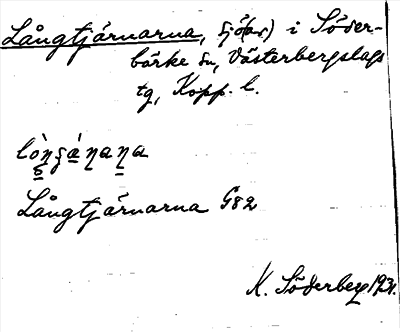 Långtjärnarna, sjö(ar) i Söder-
bärke sn, Västerbergslags
tg, Kopp. l.
Långtjärnarna G82
K. Söderberg 1931.